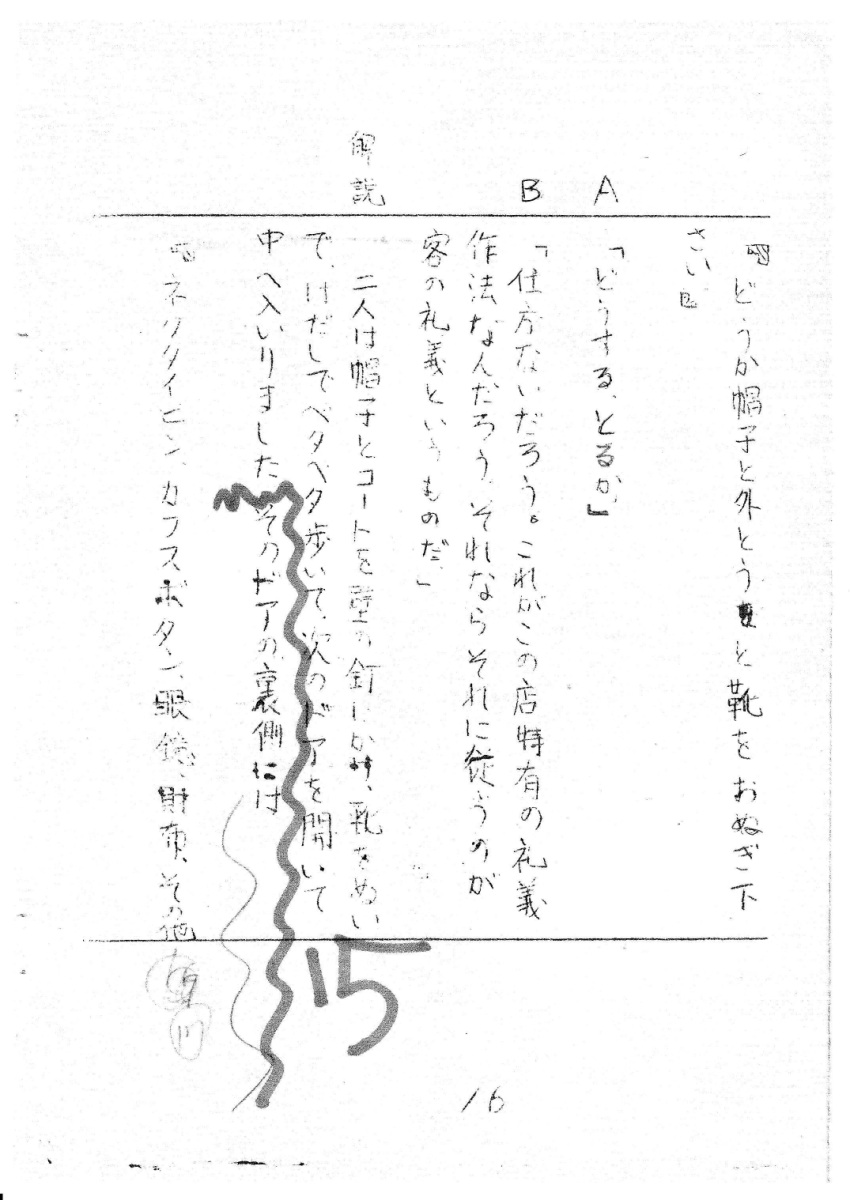 『どうか帽子と外とうと靴をおぬぎ下
さい』
A
「どうする、とるか」
B
「仕方ないだろう。これがこの店特有の礼義
作法なんだろう。それならそれに従うのが
客の礼義というものだ。」
解説
二人は帽子とコートを壁の釘にかけ、靴をぬい
で、はだしでペタペタ歩いて、次のドアを開いて
中へ入いりました
そのドアの裏側には
『ネクタイピン、カフスボタン、眼鏡、財布、その他
15
16